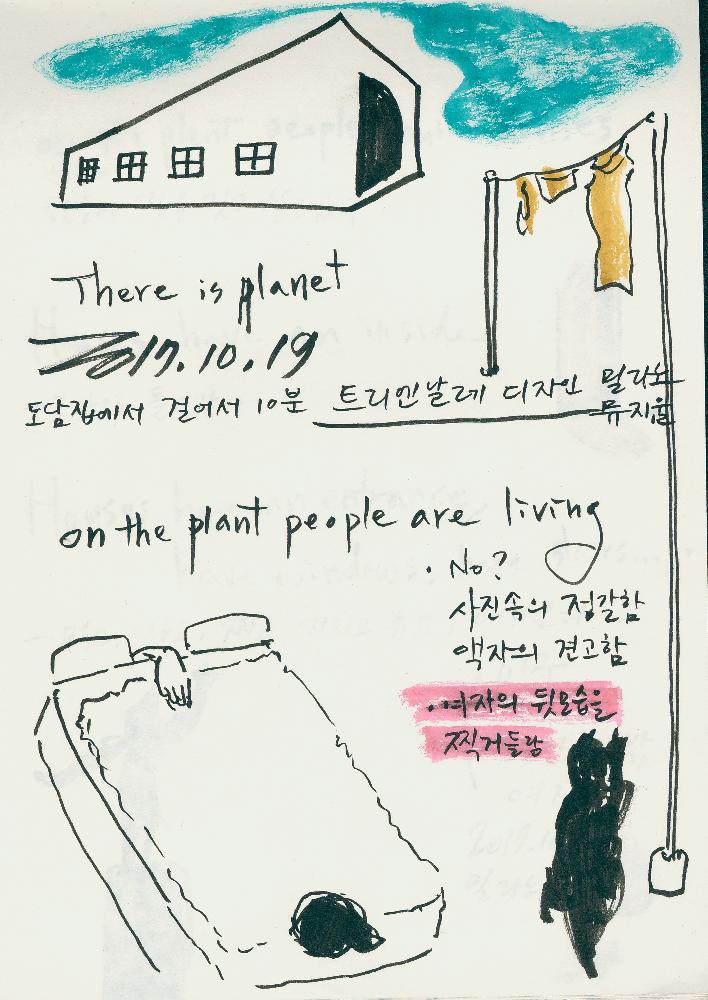 There is planet
2017.10.19
도담집에서 걸어서 10분 트리엔날레 디자인 밀라노
뮤지움
on the plant people are living
· No?
사진속의 정갈함
액자의 견고함
·여자의 뒷모습을
찍거들랑